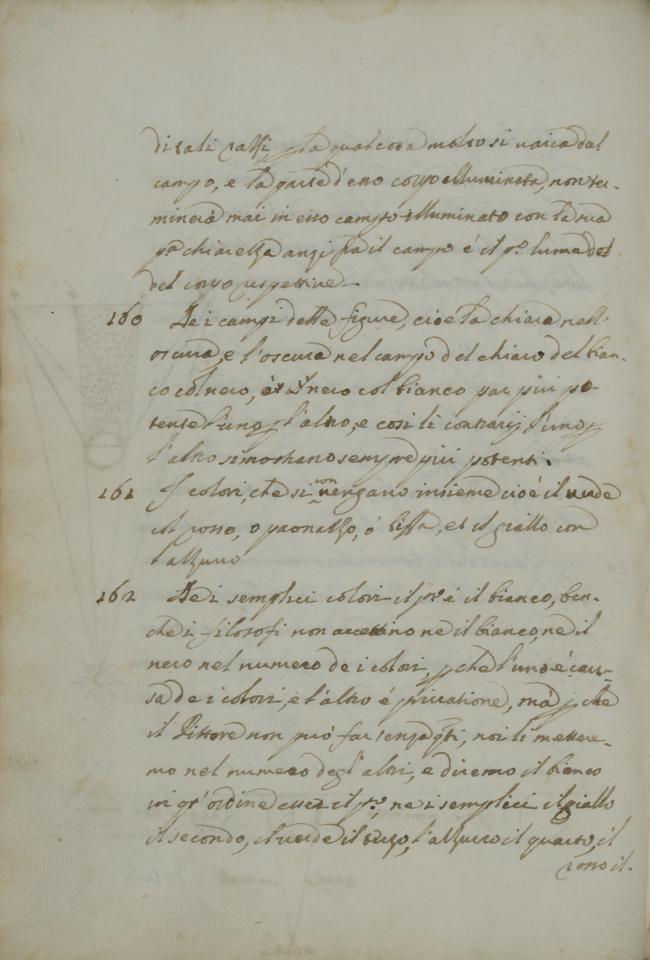 di tali razzi, p la qual cosa molto si varia dal
campo, e la parte d'esso corpo illuminata, non ter-
minerà mai in esso campo illuminato con la sua
pª chiarezza anzi fra il campo é il pº lume del
del corpo
160 De i campi delle figure, cioe la chiara nell'
oscura, e l'oscura nel campo del chiaro del bian-
co col nero, nero col bianco par piu po-
tente l'uno p l'altro, e cosi li contrarij l'uno p
l'altro si mostrano sempre piu potenti.
161 I colori, che si convengano insieme cioé il verde
col rosso, o paonazzo, ó biffa, et il giallo con
l'azzurro
162 De i semplici colori il pº é il bianco, ben-
che i filosofi non accettino ne il bianco, ne il
nero nel numero de i colori, p che l'uno é cau-
sa de i colori, e l'altro é privatione, mà p che
il Pittore non puó far senza qsti, noi li mettere-
mo nel numero degl'altri, e diremo il bianco
in qº ordine esser il pº, ne i semplici il giallo
il secondo, il verde il terzo, l'azzurro il quarto, il
rosso il.